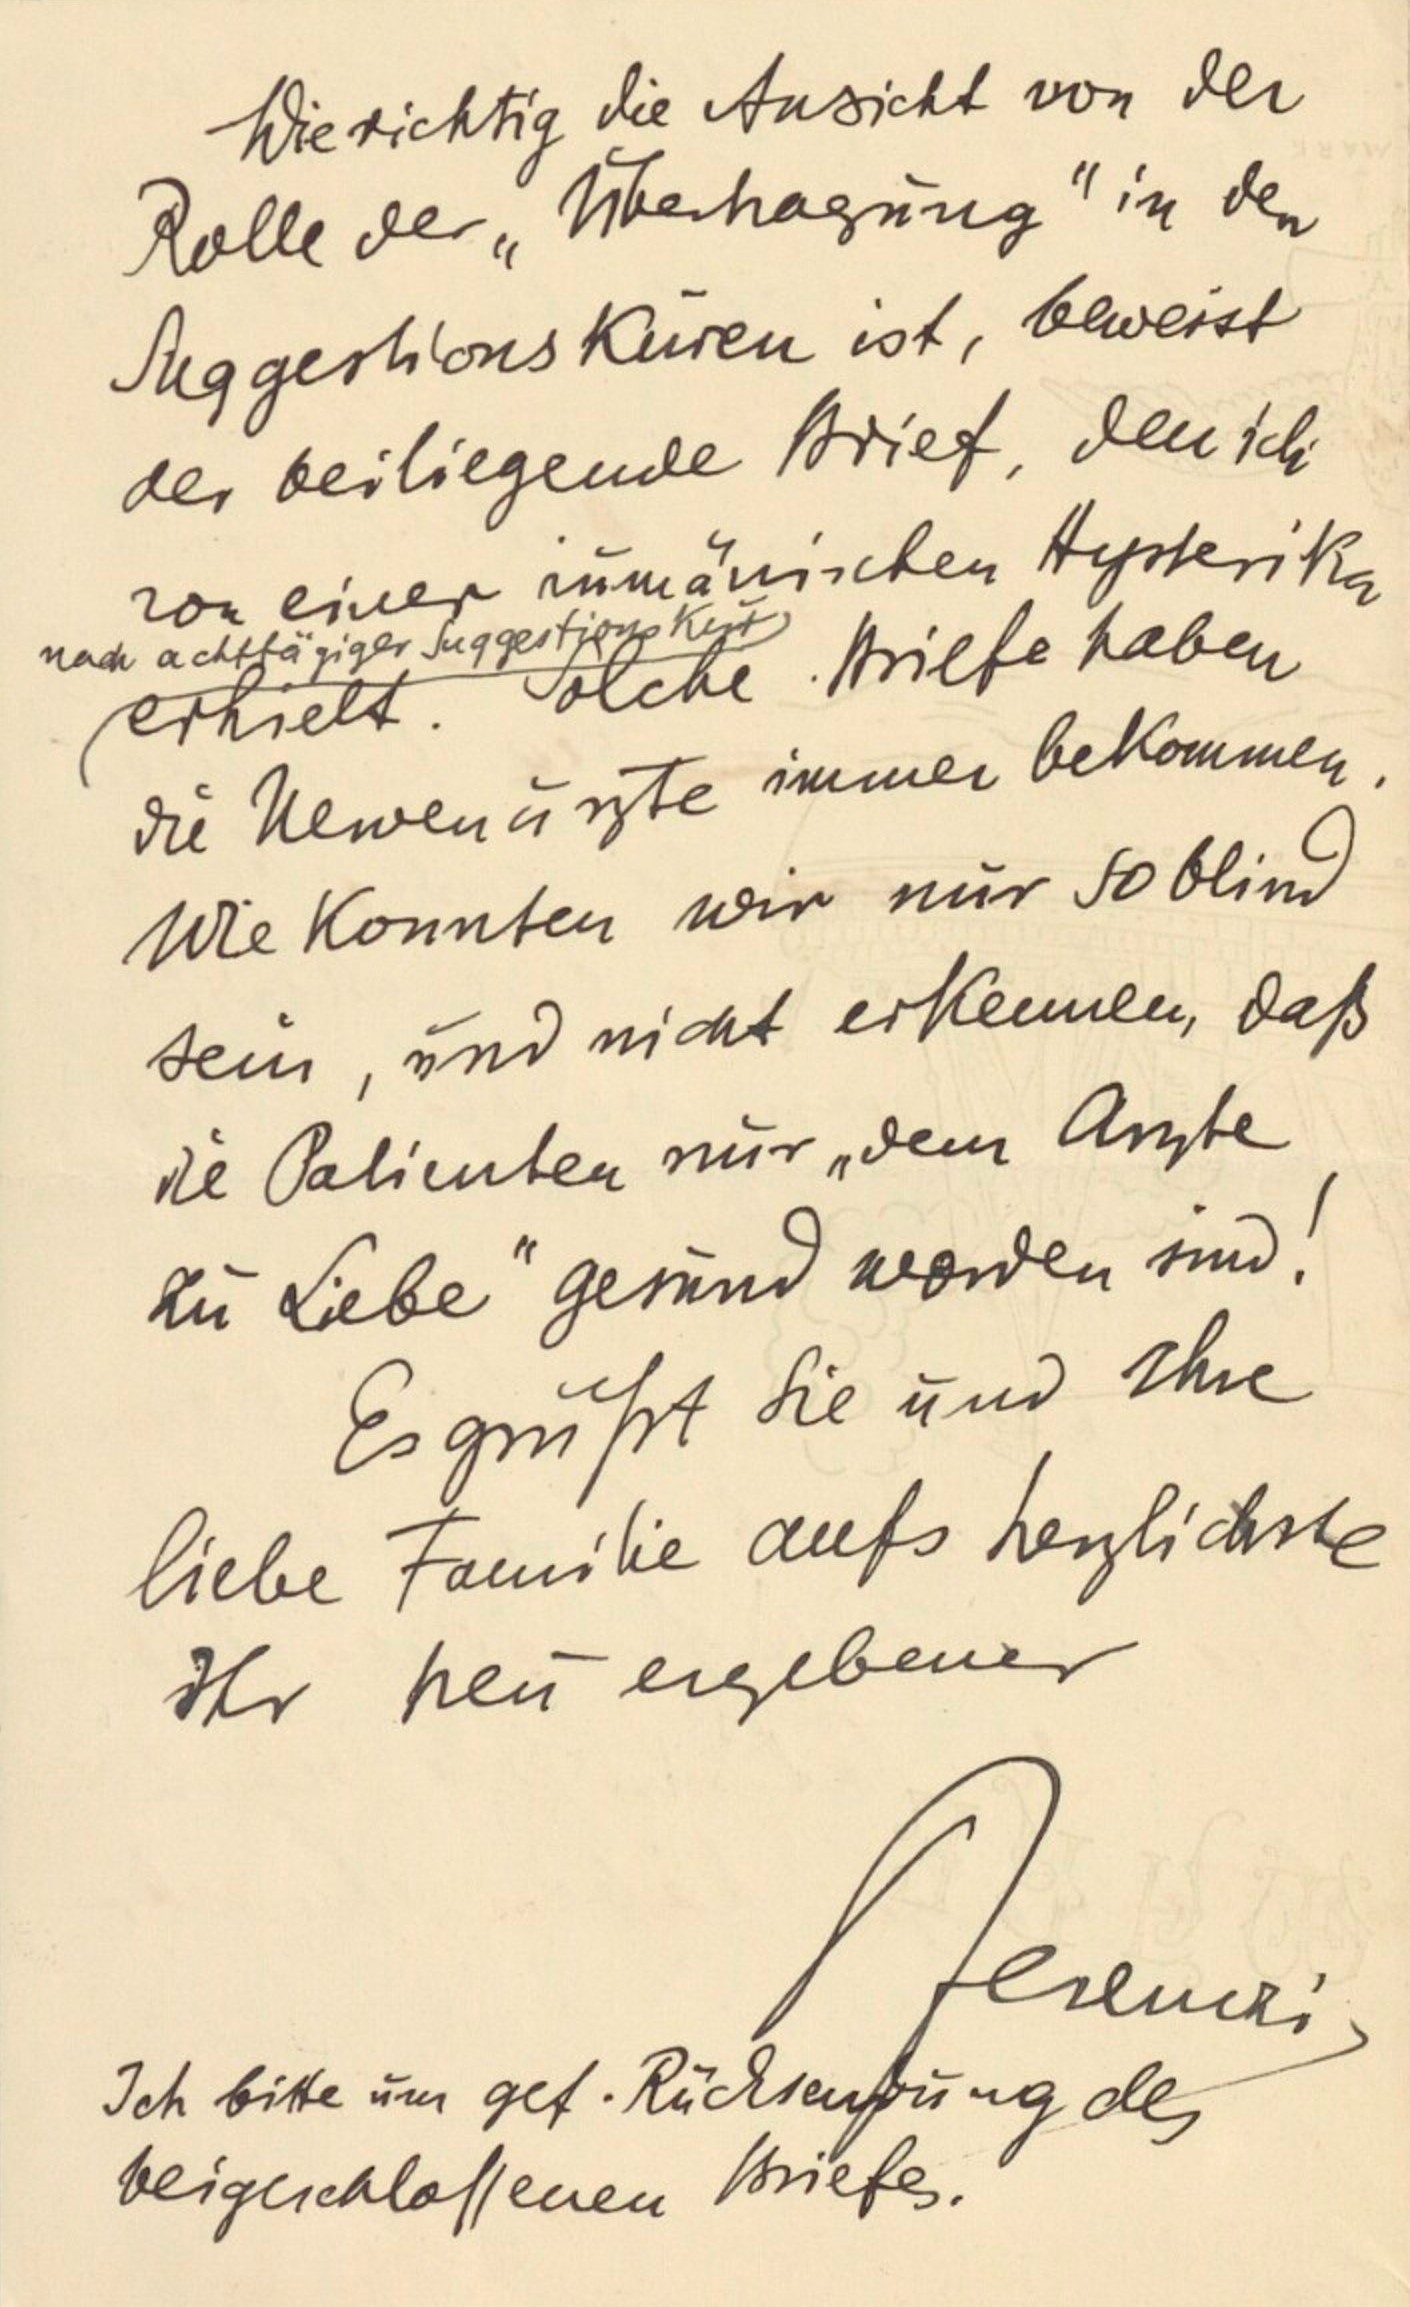 Wie richtig die Ansicht von der
Rolle der „Übertragung" in den
Suggestionskuren ist, beweist
der beiliegende Brief, den ich
von einer rumänischen Hysterika
nach achttägiger Suggestionskur
erhielt. Solche Briefe haben
die Nervenärzte immer bekommen.
Wie konnten wir nur so blind
sein, und nicht erkennen, daß
die Patienten nur „dem Arzte
zu Liebe" gesund worden sind!
Es grüßt Sie und Ihre
liebe Familie aufs herzlichste
Ihr treu ergebener
Ferenczi
Ich bitte um gef. Rücksendung des
beigeschlossenen Briefes.